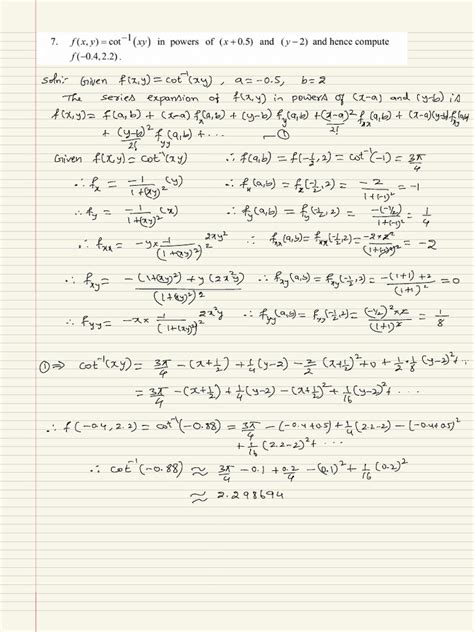 7. f(x, y) = cot⁻¹(xy) in powers of (x + 0.5) and (y − 2) and hence compute
f(−0.4, 2.2).
Soln:- Given f(x,y) = cot⁻¹(xy), a = −0.5, b = 2
The series expansion of f(x,y) in powers of (x−a) and (y−b) is
f(x,y) = f(a,b) + (x−a) f_x(a,b) + (y−b) f_y(a,b) + (x−a)²/2! f_xx(a,b) + (x−a)(y−b) f_xy(a,b)
+ (y−b)²/2! f_yy(a,b) + ··· ①
Given f(x,y) = cot⁻¹(xy) ∴ f(a,b) = f(−1/2, 2) = cot⁻¹(−1) = 3π/4
∴ f_x = −1/(1+(xy)²) (y) ∴ f_x(a,b) = f_x(−1/2, 2) = −2/(1+(−1)²) = −1
∴ f_y = −1/(1+(xy)²) (x) ∴ f_y(a,b) = f_y(−1/2, 2) = −(−1/2)/(1+(−1)²) = 1/4
∴ f_xx = −y × −1/(1+(xy)²)² 2xy² ∴ f_xx(a,b) = f_xx(−1/2, 2) = −2×2²/(1+(−1)²)² = −2
∴ f_xy = −(1+(xy)²) + y(2x²y)/(1+(xy)²)² ∴ f_xy(a,b) = f_xy(−1/2, 2) = −(1+1)+2/(1+1)² = 0
∴ f_yy = −x × −1/(1+(xy)²)² 2x²y ∴ f_yy(a,b) = f_yy(−1/2, 2) = (−1/2)²×2/(1+1)² = 1/8
① ⇒ cot⁻¹(xy) = 3π/4 − (x+1/2) + 1/4 (y−2) − 2/2 (x+1/2)² + 0 + 1/2 · 1/8 (y−2)² + ··
= 3π/4 − (x+1/2) + 1/4 (y−2) − (x+1/2)² + 1/16 (y−2)² + ··
∴ f(−0.4, 2.2) = cot⁻¹(−0.88) = 3π/4 − (−0.4+0.5) + 1/4 (2.2−2) − (−0.4+0.5)²
+ 1/16 (2.2−2)² + ···
∴ cot⁻¹(−0.88) ≈ 3π/4 − 0.1 + 0.2/4 − (0.1)² + 1/16 (0.2)²
≈ 2.298694